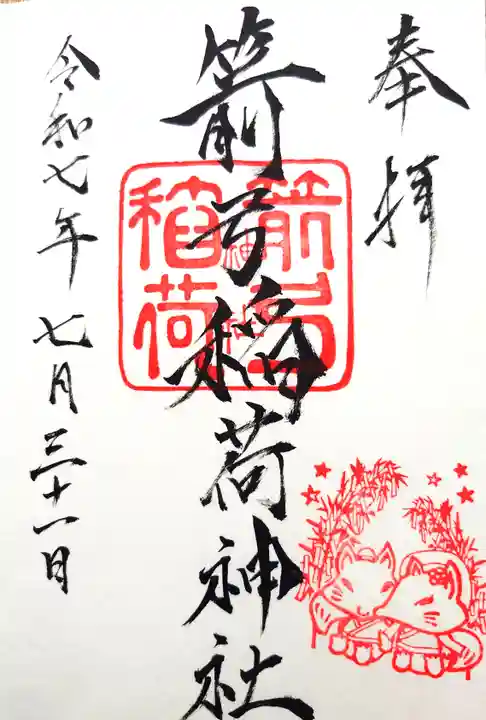 奉拝
箭弓稲荷神社
箭弓稲荷
令和七年七月三十一日